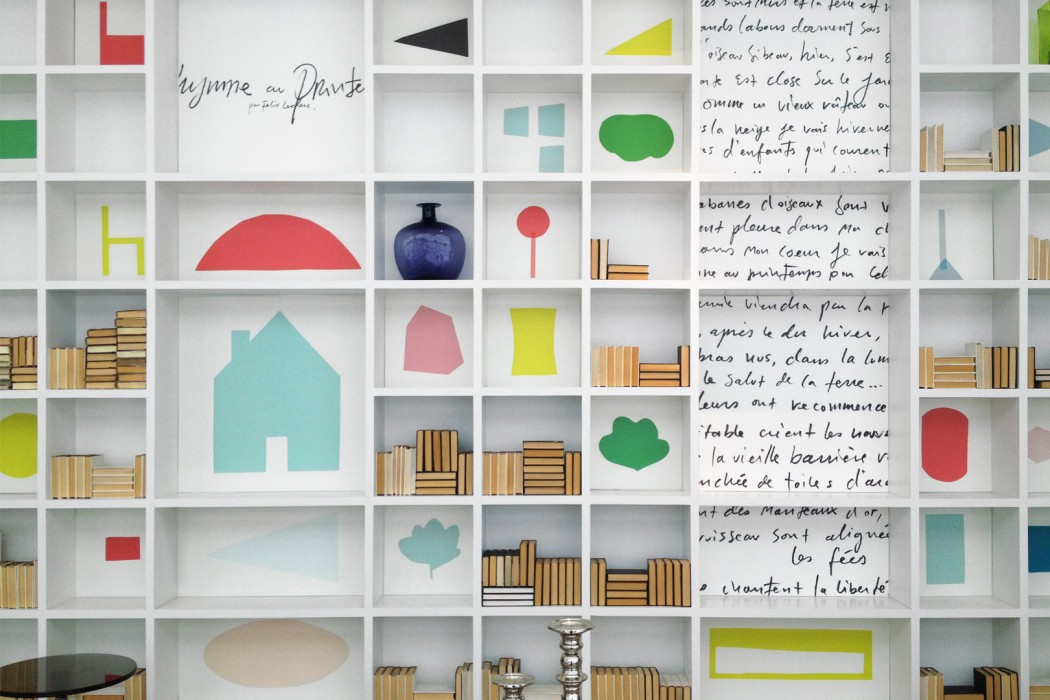 hymne au Printe
par Félix Leclerc.
les sont murs et la terre est
ands labours dorment sous
oiseau si beau, hier, s'est e
nte est close sur le jar
omme un vieux râteau ou
s la neige je vais hiverne
s d'enfants qui courent
abanes d'oiseaux sont v
ent pleure dans ma ch
dans mon coeur je vais
ne au printemps pour cel
viendra par la r
après le dur hiver,
bras nus, dans la lum
le salut de la terre...
leurs ont recommencé
étable crient les nouve
la vieille barrière r
nchée de toiles d'ara
nt des manteaux d'or,
ruisseau sont aligné
les fées
chantent la liberté